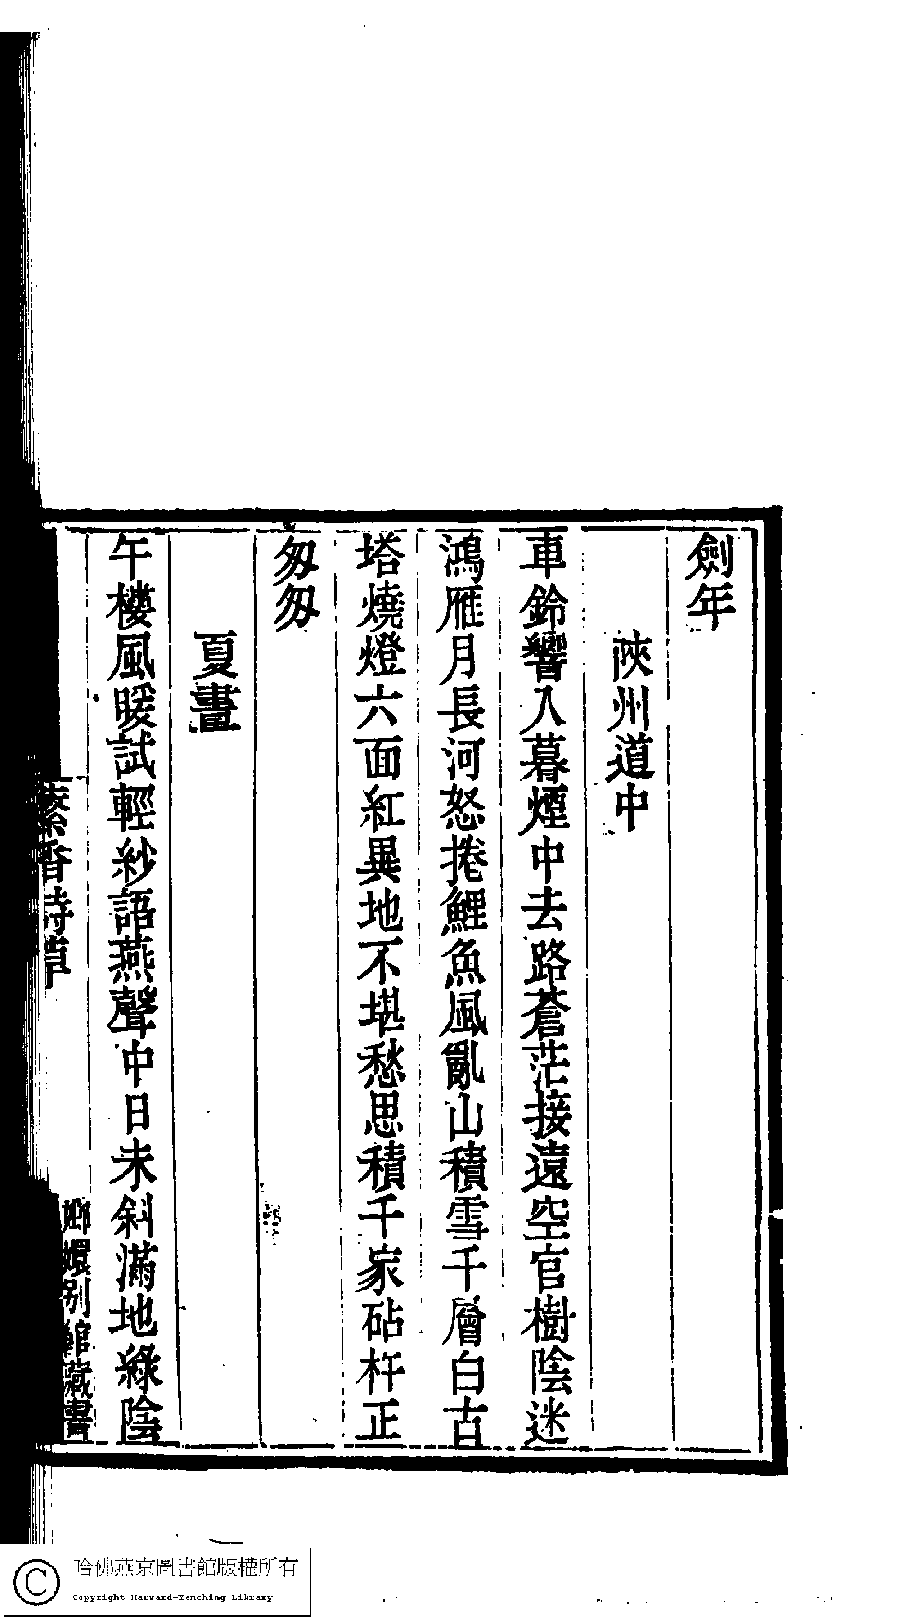 劍年
陜州道中
車鈴響入暮煙中去路蒼茫接遠空官樹陰迷
鴻雁月長河怒捲鯉魚風亂山積雪千層白古
塔燒燈六面紅異地不堪愁思積千家砧杵正
匆匆
夏晝
午樓風暖試輕紗語燕聲中日未斜滿地綠陰
香詩草
嫏嬛別館藏書
哈佛燕京圖書館版權所有
Copyright Harvard-Yenching Library